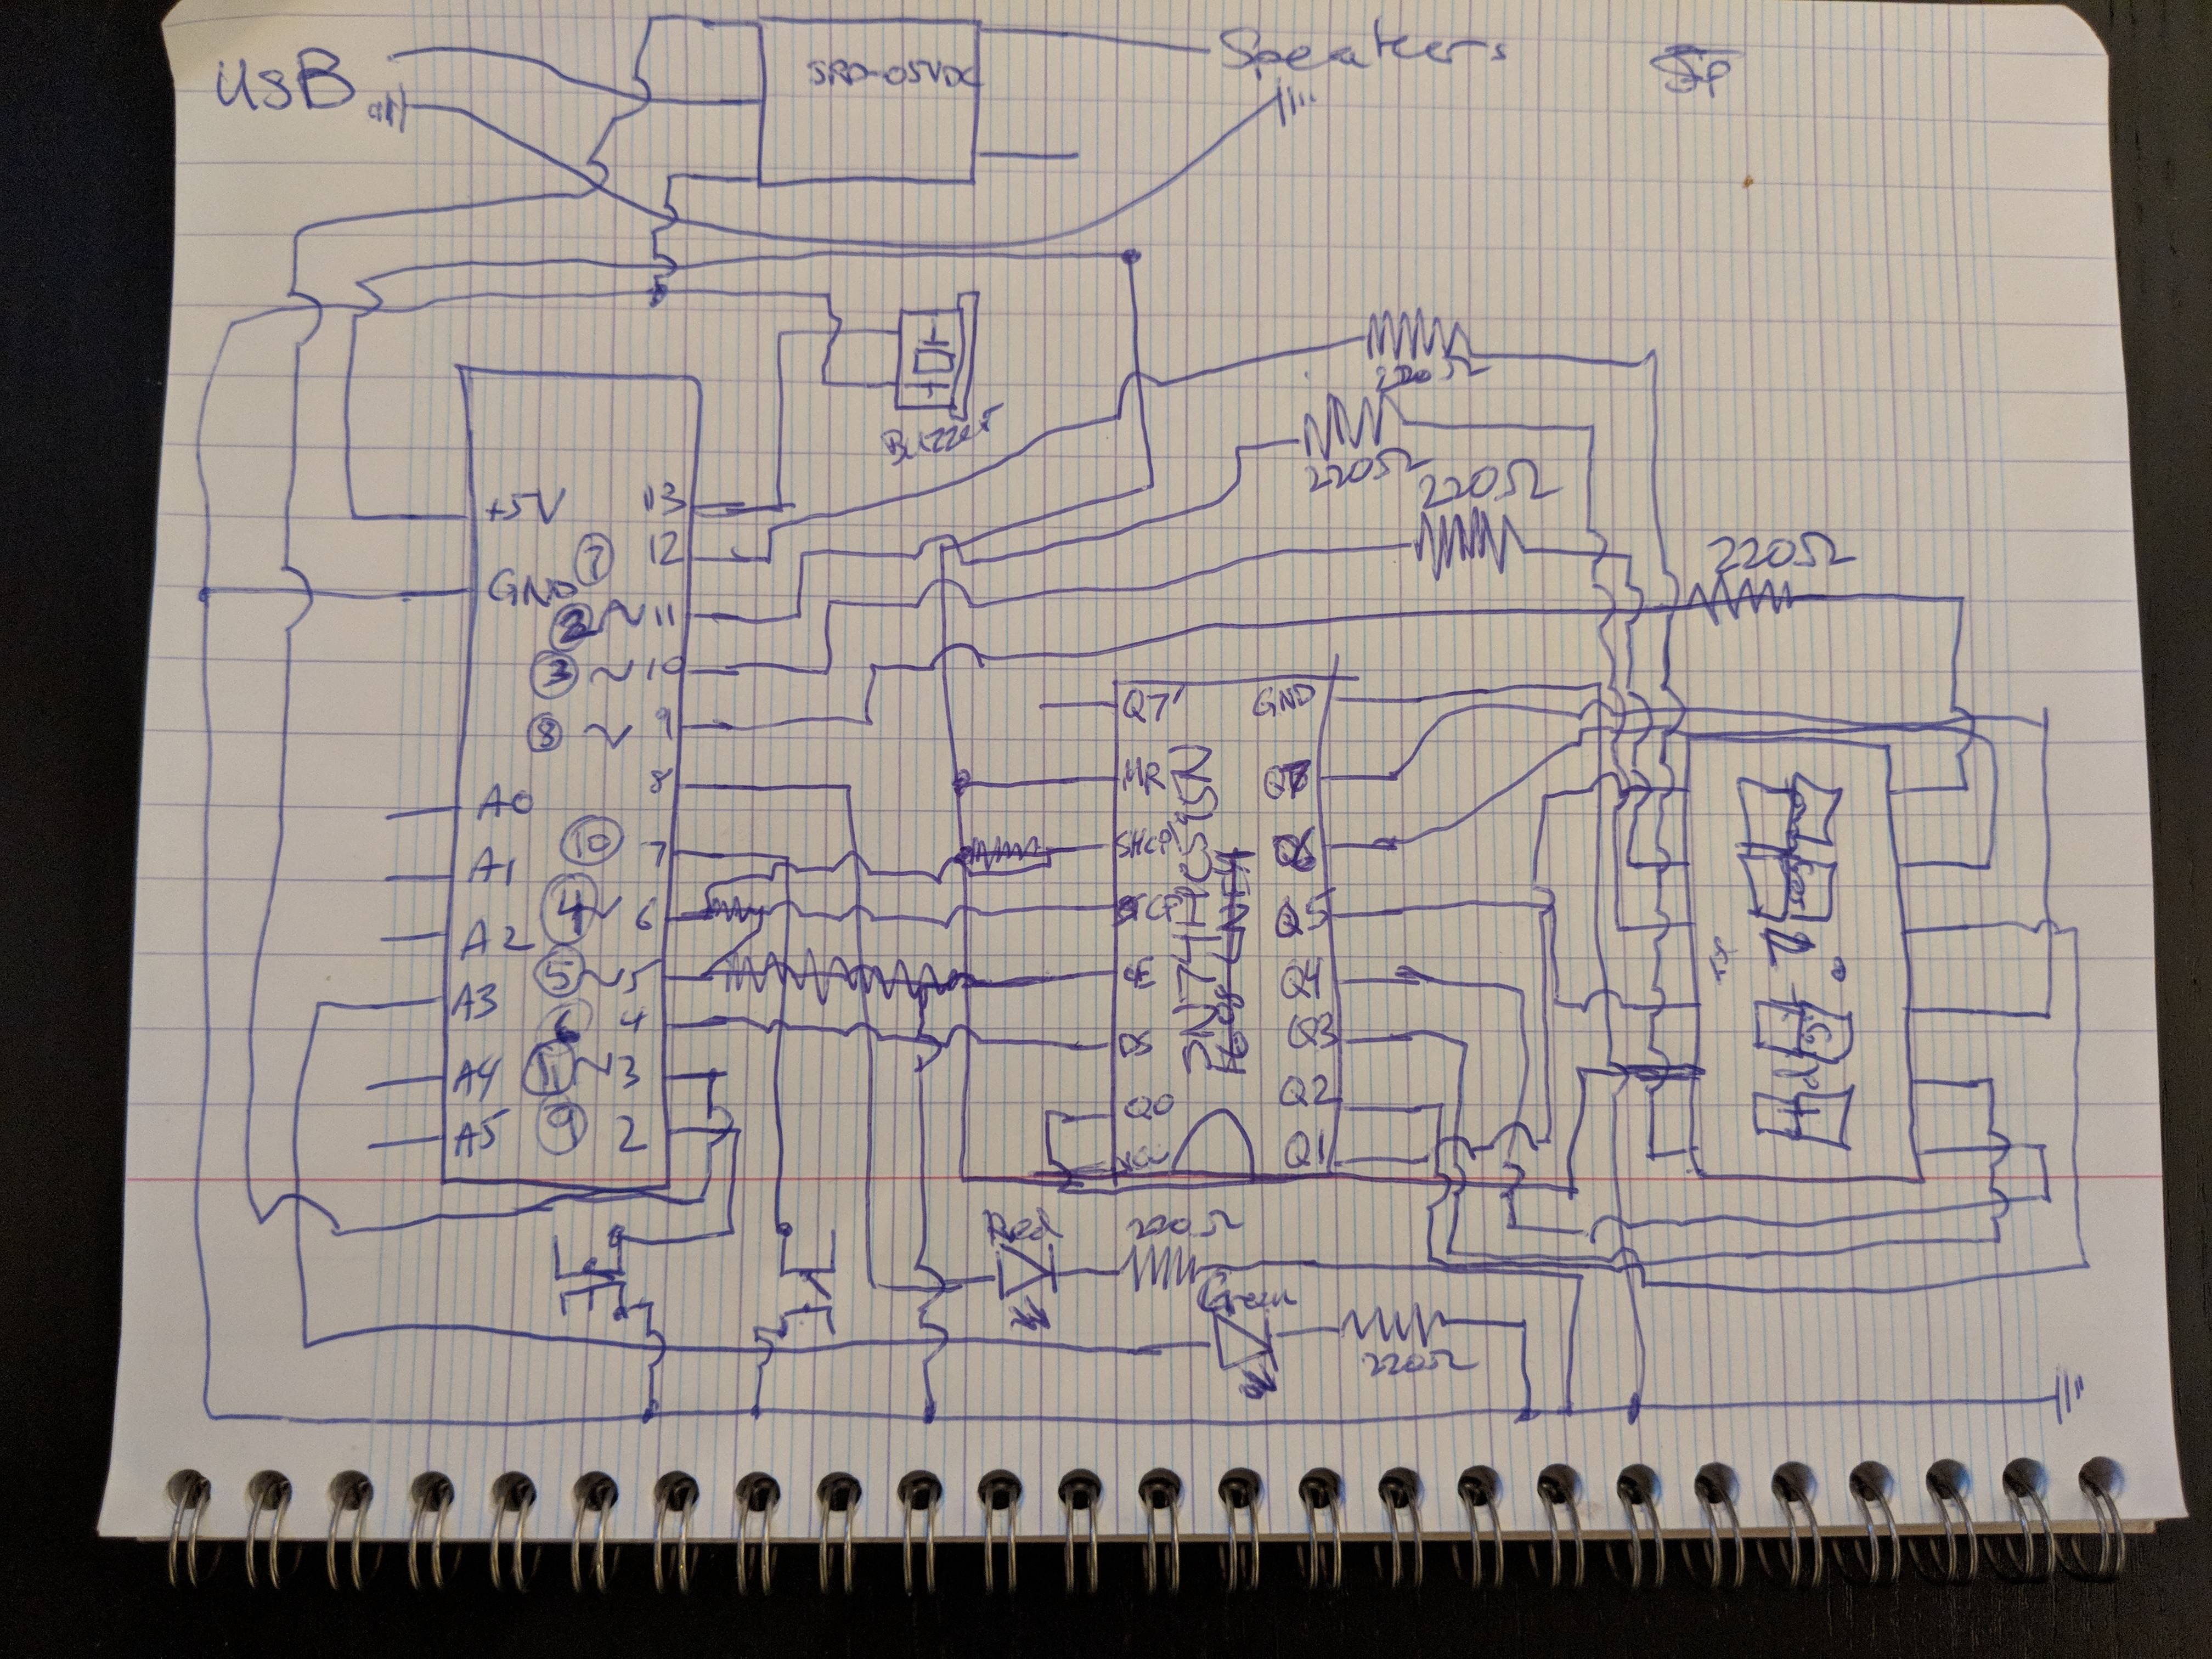 USB
SRD-05VDC
Speakers
Buzzer
220Ω
220Ω
220Ω
220Ω
+5V
GND
A0
A1
A2
A3
A4
A5
13
⑦ 12
② ~ 11
③ ~ 10
⑧ ~ 9
8
⑩ 7
④ ~ 6
⑤ ~ 5
⑥ 4
① ~ 3
⑨ 2
Q7'
MR
SHCP
STCP
OE
DS
Q0
VCC
GND
Q7
Q6
Q5
Q4
Q3
Q2
Q1
Red
220Ω
Green
220Ω